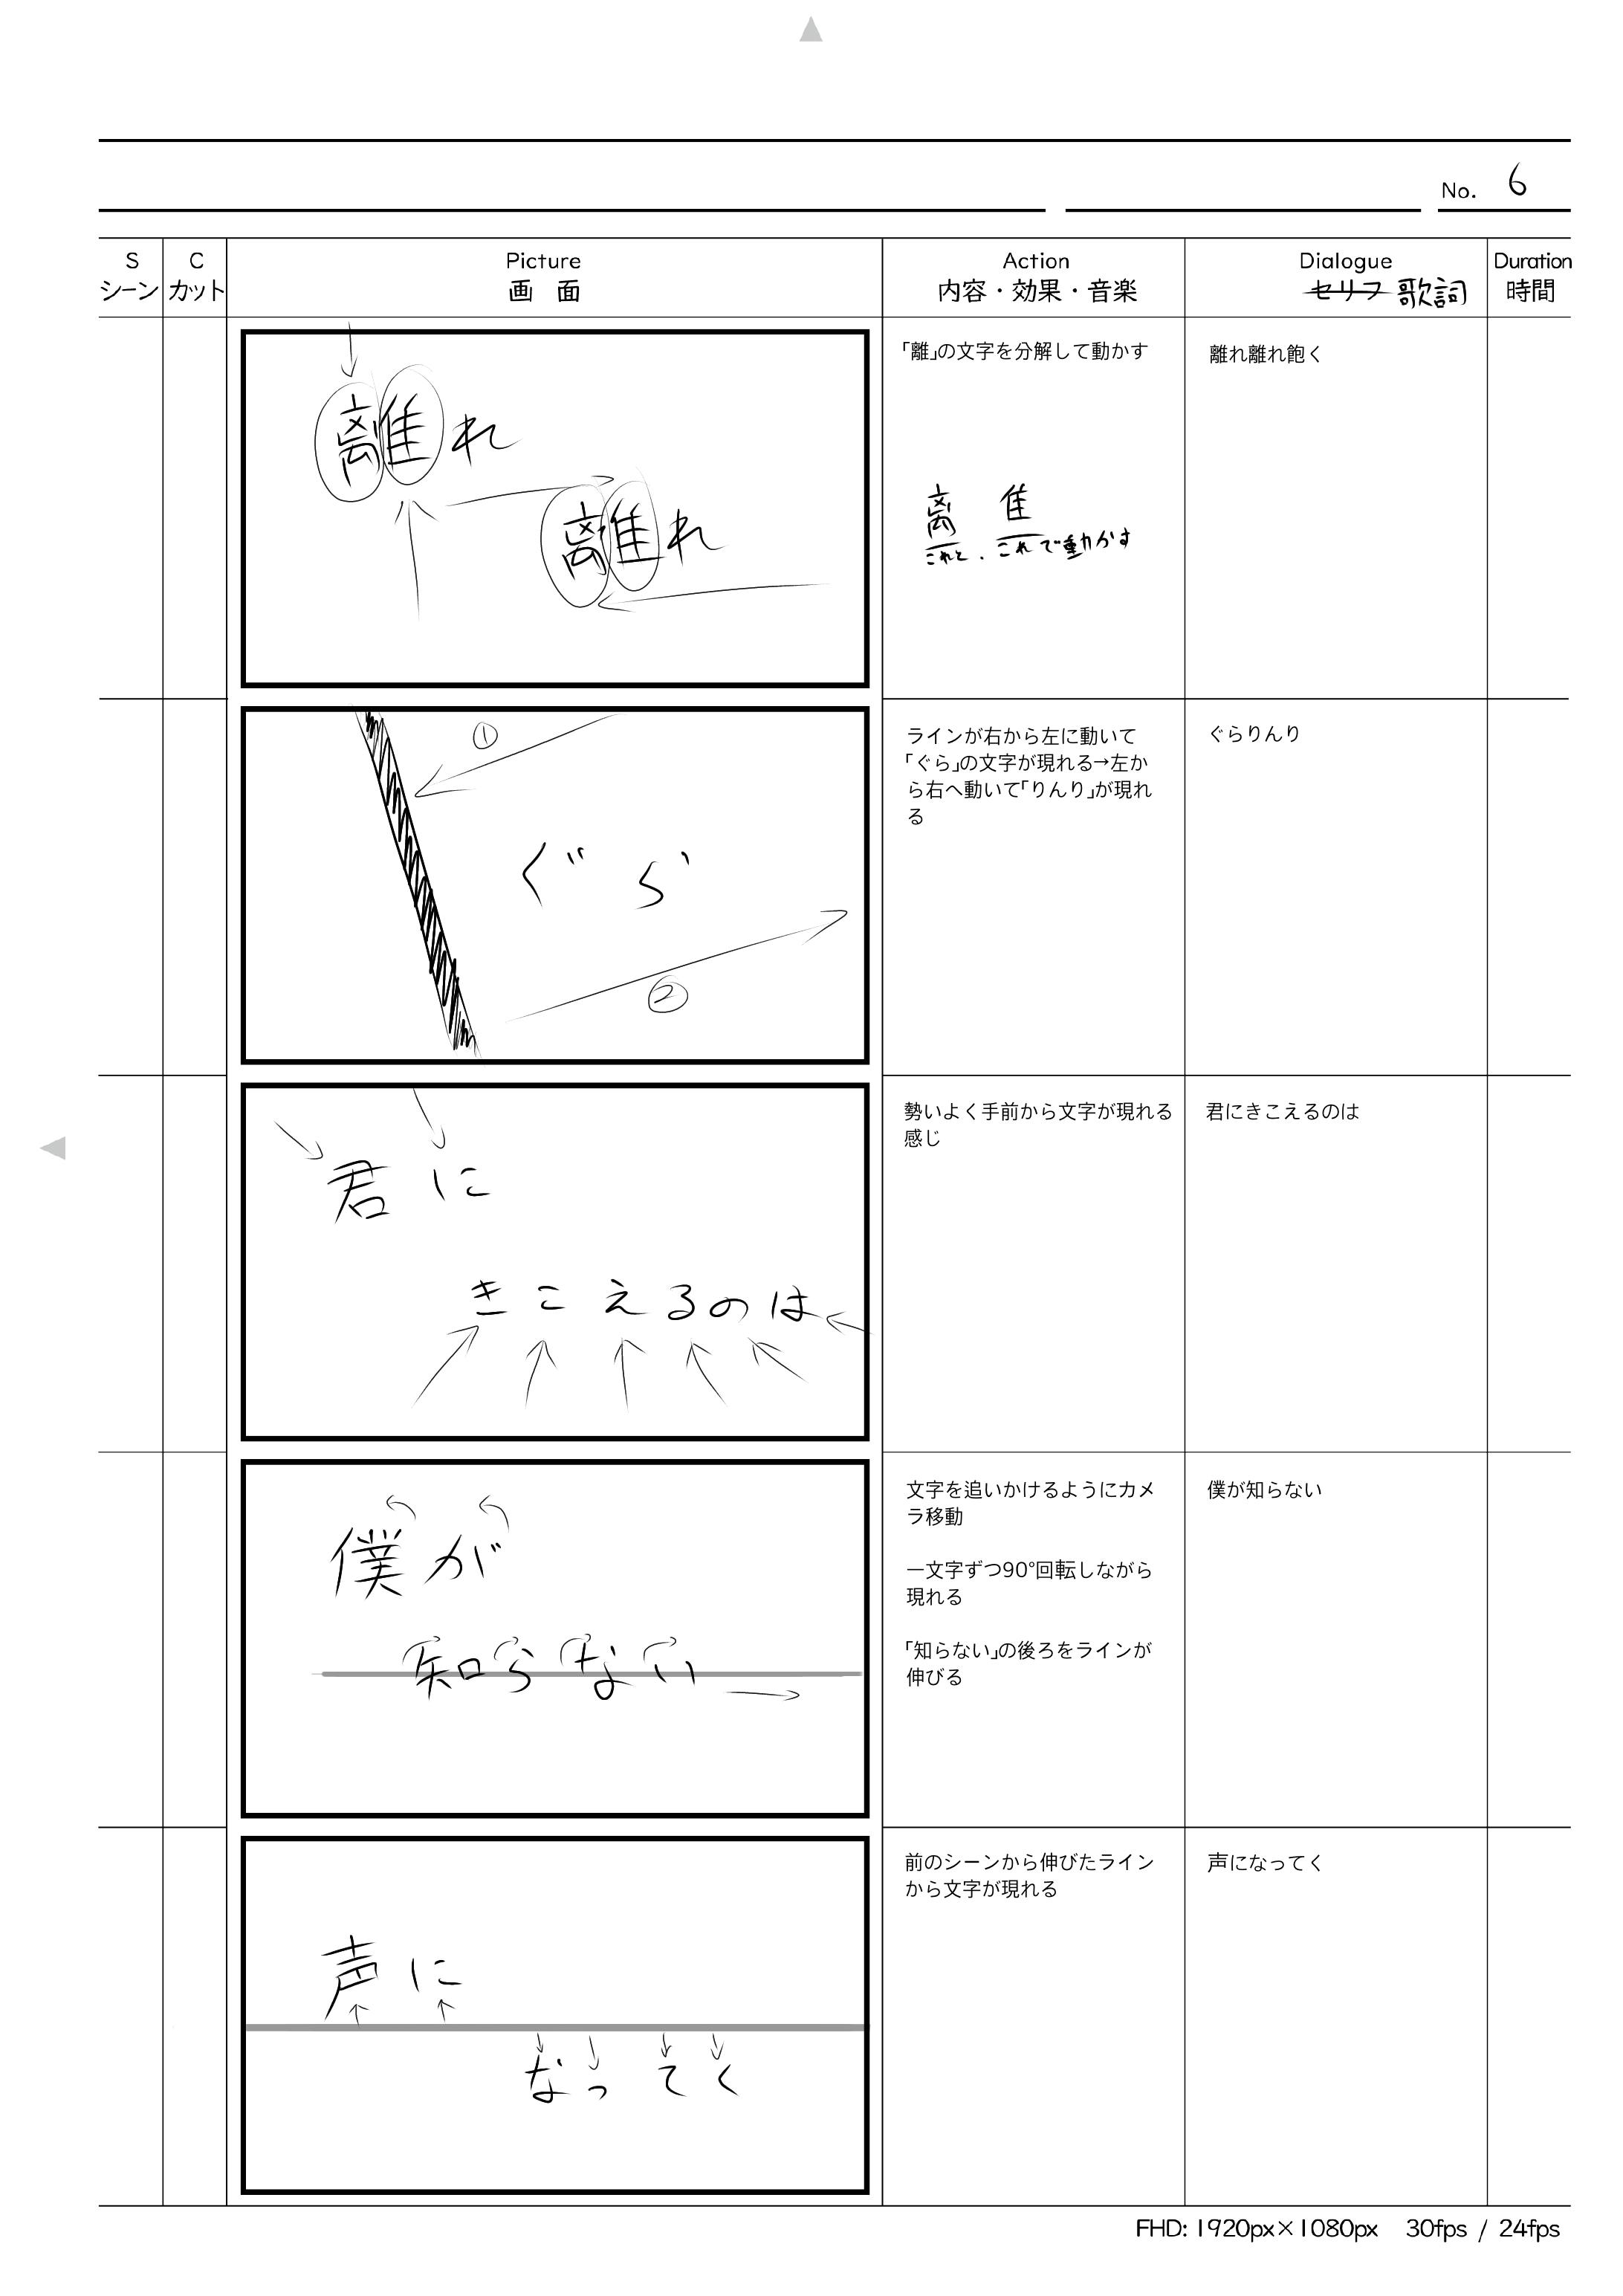 No. 6
S
シーン
C
カット
Picture
画 面
Action
内容・効果・音楽
Dialogue
セリフ 歌詞
Duration
時間
離れ
離れ
「離」の文字を分解して動かす
离 隹
これと、これで動かす
離れ離れ飽く
①
ぐら
②
ラインが右から左に動いて
「ぐら」の文字が現れる→左か
ら右へ動いて「りんり」が現れ
る
ぐらりんり
君に
きこえるのは
勢いよく手前から文字が現れる
感じ
君にきこえるのは
僕が
知らない
文字を追いかけるようにカメ
ラ移動
一文字ずつ90°回転しながら
現れる
「知らない」の後ろをラインが
伸びる
僕が知らない
声に
なってく
前のシーンから伸びたライン
から文字が現れる
声になってく
FHD: 1920px×1080px 30fps / 24fps